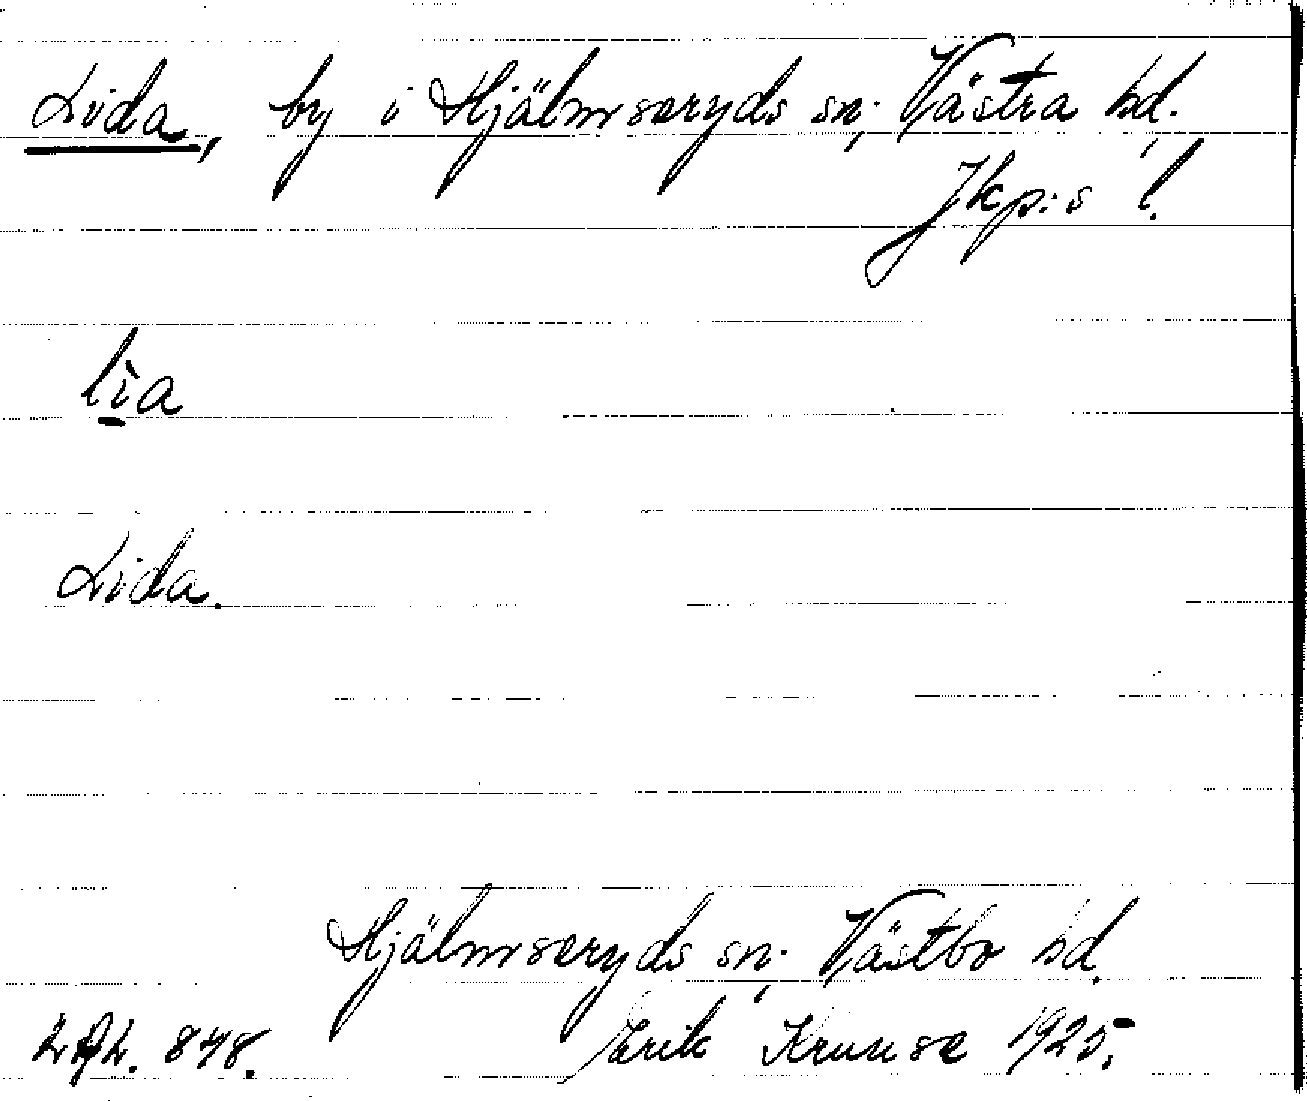 Lida, by i Hjälmseryds sn; Västra hd.
Jkp:s l.
lìa
Lida.
Hjälmseryds sn; Västbo hd.
848. Erik Kruuse 1925.